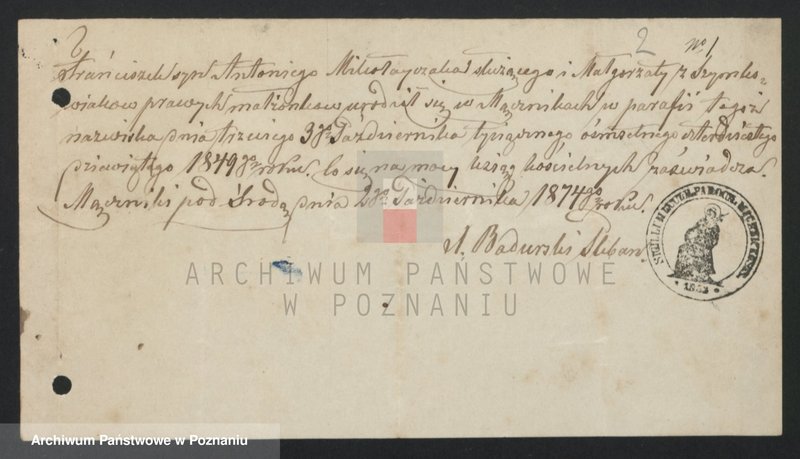 2 No 1
Franciszek syn Antoniego Mikołayczaka służącego i Małgorzaty z Szymko-
wiaków prawych małżonków urodził się w Mącznikach w parafii tegoż
nazwiska dnia trzeciego 3go Października tysiącznego ośmsetnego czterdziestego
dziewiątego 1849go roku, to się na mocy ksiąg kościelnych zaświadcza.
Mączniki pod Środą dnia 2go Października 1874go roku.
Badurski Pleban.
1843
ARCHIWUM PAŃSTWOWE
W POZNANIU
Archiwum Państwowe w Poznaniu